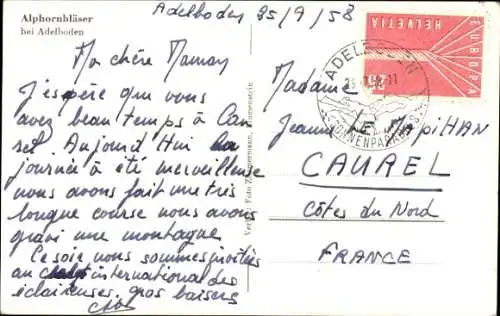 Alphornbläser
bei Adelboden
Adelboden 25/9/58
Ma chère Maman
J'espère que vous
avez beau temps à Cau
rel. Aujourd'Hui la
journée à été merveilleuse
nous avons fait une très
longue course nous avons
gravi une montagne
Ce soir nous sommes invités
au international des
éclaireuses. gros baisers
Verlag Foto Zimmermann, Blumenstein
HELVETIA
EUROPA
ADELBODEN
SONNENPARADIES
Madame
Jeanne
CAUREL
Côtes du Nord
FRANCE